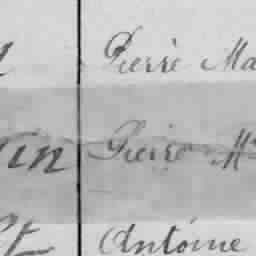 Pierre Ma
in Pierre M
Antoine